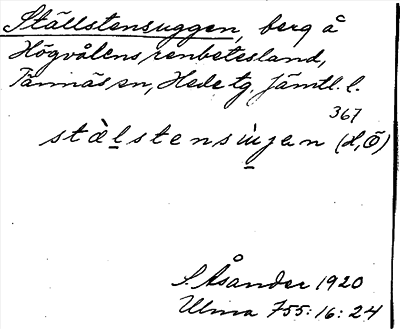 Ställstensuggen, berg å
Högvålens renbetesland,
Tännäs sn, Hede tg, Jämtl. l.
367
stàl̠stensi̠ugen (d, Ö)
S. Åsander 1920
Ulma 755:16:24